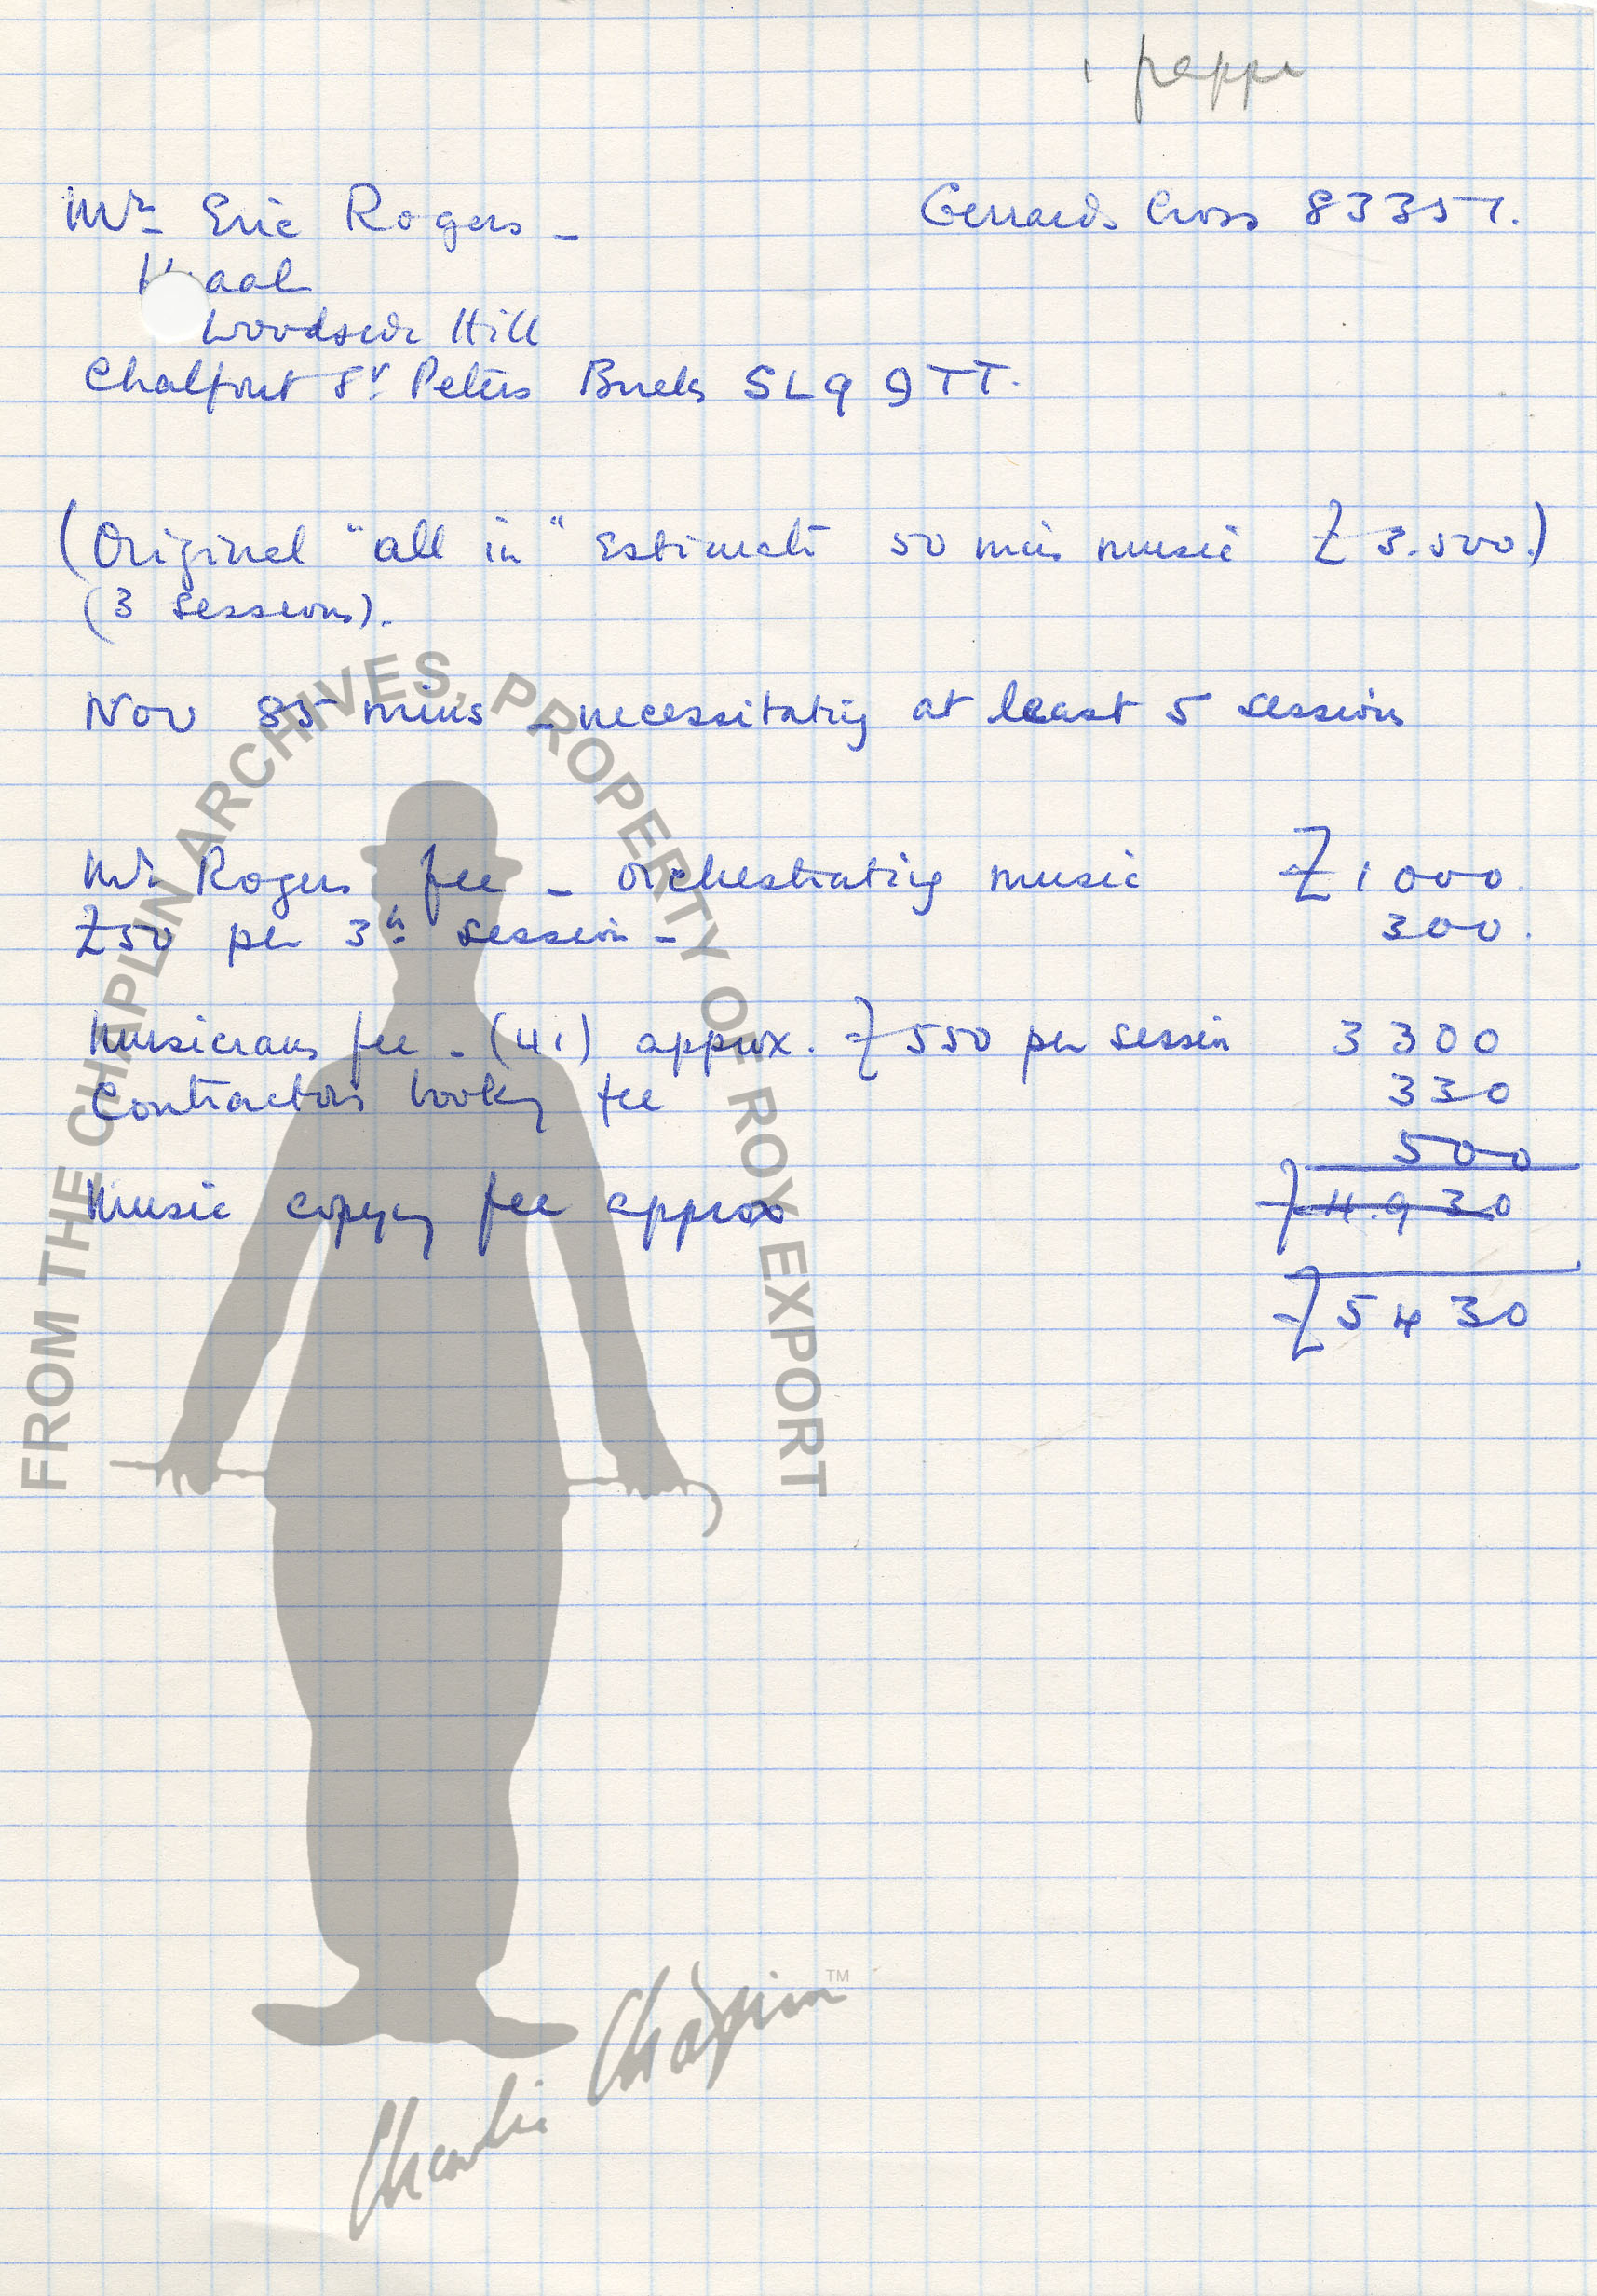 Mr Eric Rogers - Gerrards Cross 83357.
aal
Woodside Hill
Chalfont St Peters Bucks SL9 9TT.
(Original "all in" Estimate 50 mins music £3.500.)
(3 sessions).
Now 85 mins - necessitating at least 5 sessions
Mr Rogers fee - orchestrating music £1000.
£50 per 3h session - 300.
Musicians fee - (41) approx. £550 per session 3300
Contractors booking fee 330
500
Music copying fee approx £4.930
£5430
FROM THE CHAPLIN ARCHIVES, PROPERTY OF ROY EXPORT
Charlie Chaplin TM